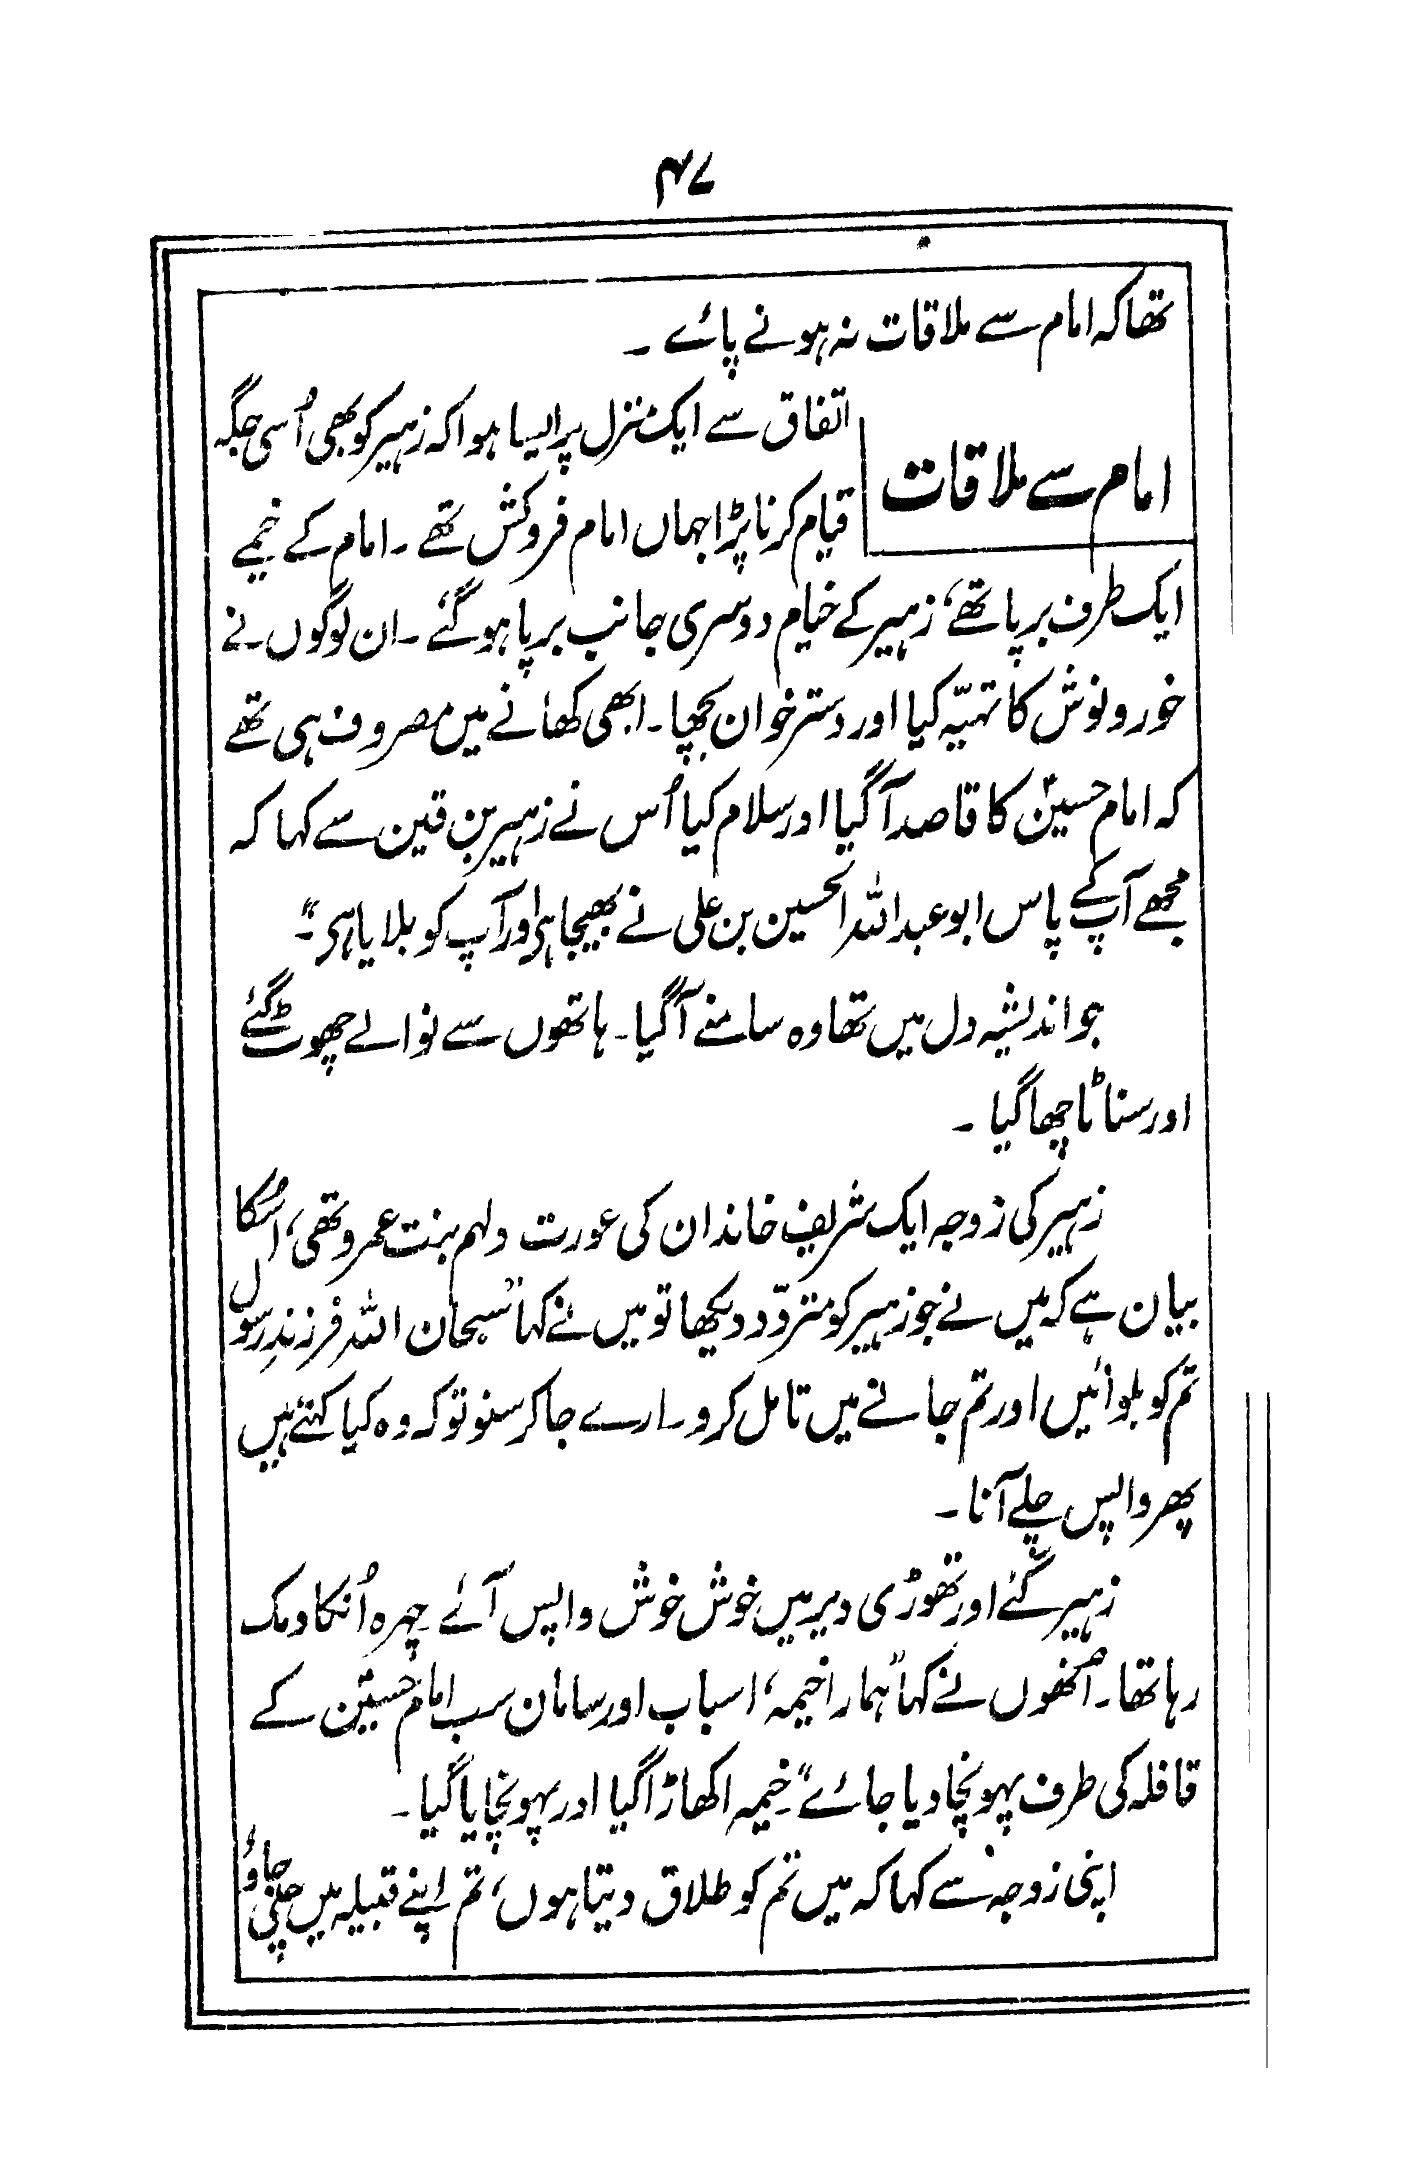 ۴۷
تھا کہ امام سے ملاقات نہ ہونے پائے ۔
امام سے ملاقات
اتفاق سے ایک منزل پر ایسا ہوا کہ زہیر کو بھی اُسی جگہ
قیام کرنا پڑا جہاں امام فروکش تھے ۔ امام کے خیمے
ایک طرف برپا تھے، زہیر کے خیام دوسری جانب برپا ہو گئے ۔ ان لوگوں نے
خورونوش کا تہیّہ کیا اور دسترخوان بچھا ۔ ابھی کھانے میں مصروف ہی تھے
کہ امام حسینؑ کا قاصد آگیا اور سلام کیا اُس نے زہیر بن قین سے کہا کہ
مجھے آپ کے پاس ابو عبداللہ الحسین بن علی نے بھیجا ہی اور آپ کو بلایا ہی ۔"
جو اندیشہ دل میں تھا وہ سامنے آگیا ۔ ہاتھوں سے نوالے چھوٹ گئے
اور سناٹا چھا گیا ۔
زہیر کی زوجہ ایک شریف خاندان کی عورت دلہم بنت عمرو تھی، اُسکا
بیان ہے کہ میں نے جو زہیر کو متردّد دیکھا تو میں نے کہا "سبحان اللہ فرزندِ رسول
تم کو بلوائیں اور تم جانے میں تامل کرو ۔ ارے جا کر سنو تو کہ وہ کیا کہتے ہیں
پھر واپس چلے آنا ۔
زہیر گئے اور تھوڑی دیر میں خوش خوش واپس آئے چہرہ اُنکا دمک
رہا تھا ۔ اُنھوں نے کہا "ہمارا خیمہ، اسباب اور سامان سب امام حسینؑ کے
قافلہ کی طرف پہونچا دیا جائے" خیمہ اکھاڑا گیا اور پہونچایا گیا ۔
اپنی زوجہ سے کہا کہ میں تم کو طلاق دیتا ہوں، تم اپنے قبیلہ میں چلی جاؤ